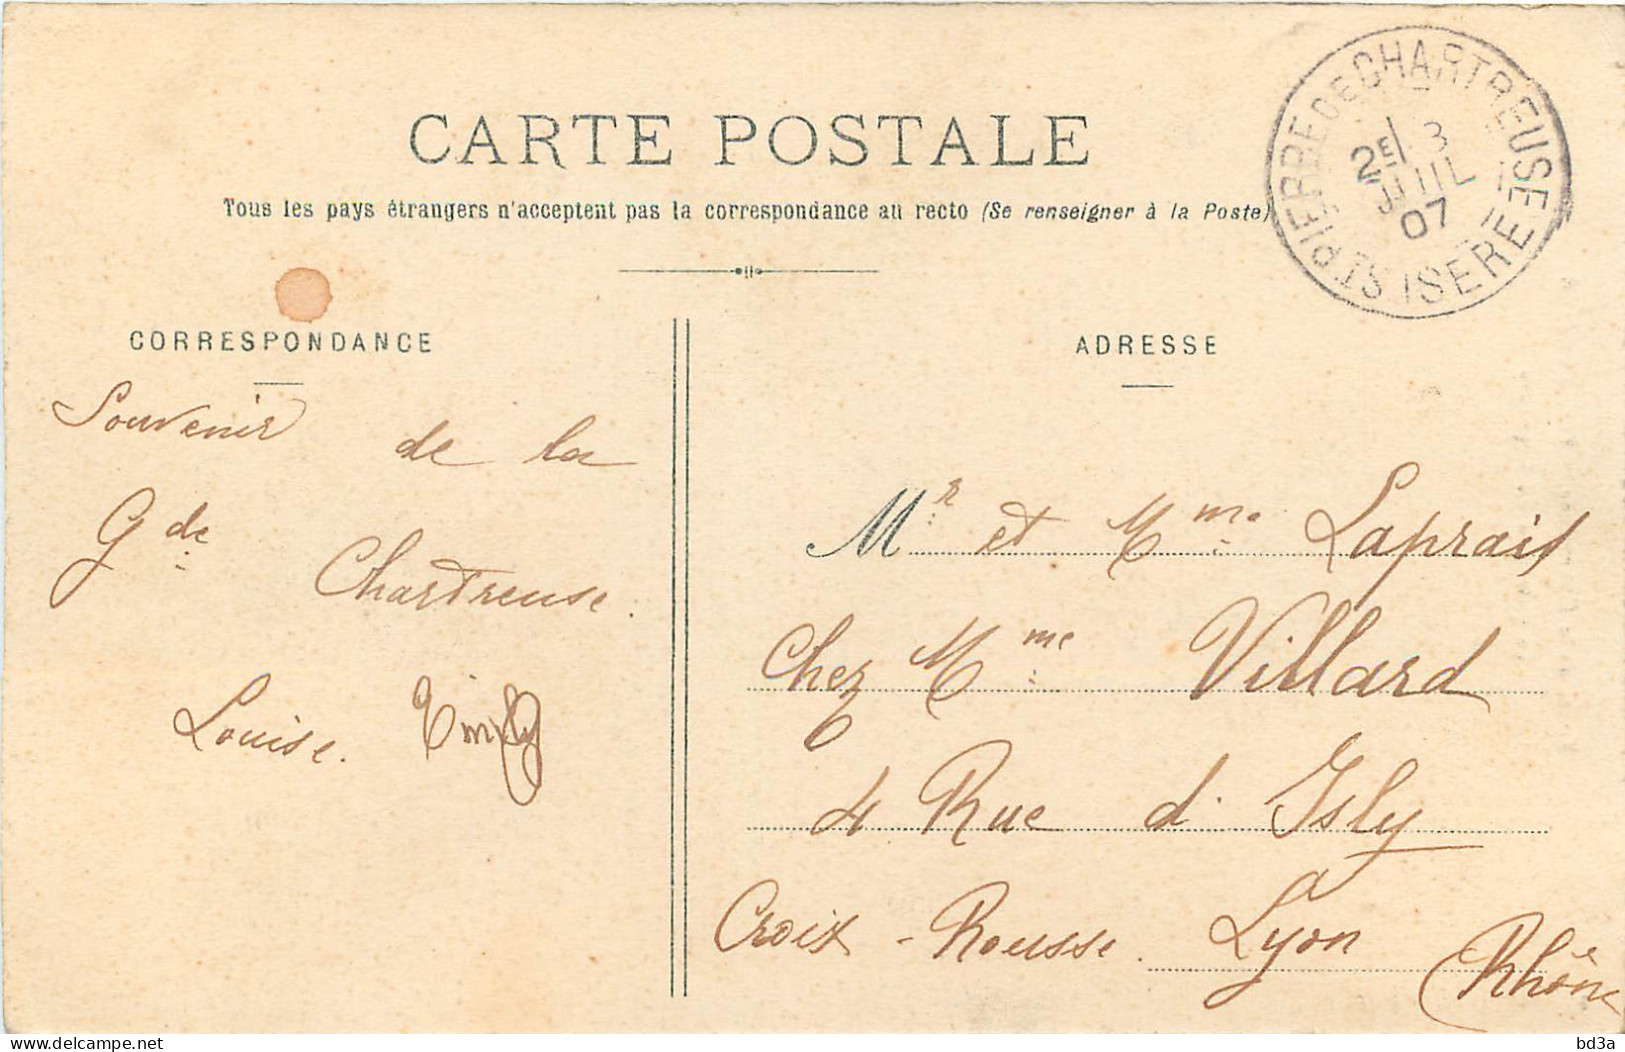 CARTE POSTALE
Tous les pays étrangers n'acceptent pas la correspondance au recto (Se renseigner à la Poste)
ST PIERRE DE CHARTREUSE
2E/ 3
JUIL
07
ISERE
CORRESPONDANCE
Souvenir de la
Gde Chartreuse.
Louise. Emily
ADRESSE
Mr et Mme Laprais
Chez Mme Villard
4 Rue d'Isly
à
Croix-Rousse. Lyon
(Rhône
bd3a